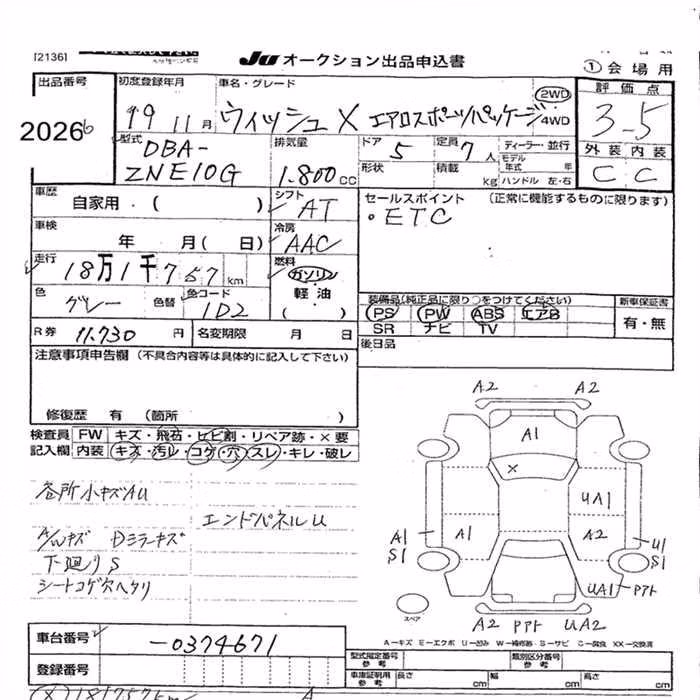 [2136]
JU オークション出品申込書
① 会場用
出品番号
20266
初度登録年月
19 11月
車名・グレード
ウィッシュ X エアロスポーツパッケージ
2WD
4WD
評価点
3.5
外装 内装
C C
型式
DBA-
ZNE10G
排気量
1.800cc
ドア
5
定員
7人
形状
積載
kg
ディーラー・並行
モデル
年式 年
ハンドル 左・右
車歴
自家用・( )
シフト
AT
セールスポイント (正常に機能するものに限ります)
・ETC
車検
年 月( 日)
冷房
AAC
走行
18万1千757km
燃料
ガソリン
軽油
( )
色
グレー
色替
色コード
1D2
装備品(純正品に限り○をつけてください)
PS PW ABS エアB
SR ナビ TV
新車保証書
有・無
R券
11.730円
名変期限 月 日
後日品
注意事項申告欄 (不具合内容等は具体的に記入して下さい)
修復歴 有 (箇所 )
検査員
記入欄
FW キズ・飛石・ヒビ割・リペア跡・×要
内装 キズ・汚レ・コゲ・穴・スレ・キレ・破レ
各所小キズAU
エンドパネルU
A/Wキズ Dミラーキズ
下廻りS
シートコゲ穴ヘタリ
A2 A2
A1
X
UA1
A1
S1
A1
A2
U1
S1
UA1 Pアト
スペア
A2 Pアト UA2
A-キズ E-エクボ U-凹み W-補修跡 S-サビ C-腐食 XX-交換済
車台番号
-0374671
登録番号
型式指定番号
参考
類別区分番号
参考
車庫証明用
参考
長さ cm 幅 cm 高さ cm